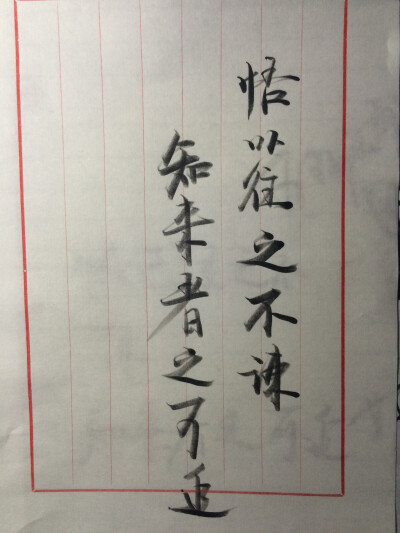 悟以往之不谏
知来者之可追